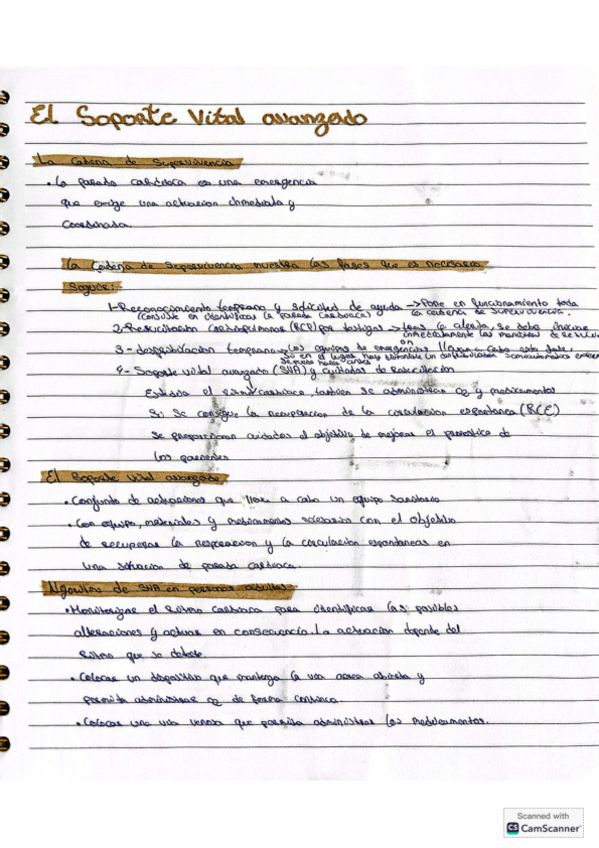 El Soporte Vital avanzado
La Cadena de Supervivencia
• La parada cardiaca es una emergencia
que exige una actuacion inmediata y
coordinada.
La Cadena de Supervivencia muestra las fases que es necesario
seguir:
1-Reconocimiento temprano y solicitud de ayuda → Pone en funcionamiento toda
(consiste en identificar la parada cardiaca) la cadena de supervivencia.
2-Resucitacion cardiopulmonar (RCP) por testigos → tras la alerta, se debe iniciar
inmediatamente las maniobras de
3-desfibrilacion temprana → los equipos de emergencia llevan a cabo esta fase,
si en el lugar hay disponible un desfibrilador semiautomatico
4-Soporte vital avanzado (SVA) y cuidados de
el ritmo cardiaco, tambien se administran O2 y medicamentos
Si se consigue la recuperacion de la circulacion espontanea (RCE)
se proporcionan cuidados el objetivo de mejorar el pronostico de
los pacientes
El Soporte Vital avanzado
• Conjunto de actuaciones que lleva a cabo un equipo sanitario
• Con equipo, materiales y medicamentos necesarios con el objetivo
de recuperar la respiracion y la circulacion espontaneas en
una situacion de parada cardiaca.
Algoritmo de SVA en personas adultas
• Monitorizar el ritmo cardiaco para identificar las posibles
alteraciones y actuar en consecuencia. La actuacion depende del
ritmo que se detecte
• Colocar un dispositivo que mantenga la via aerea abierta y
permita administrar O2 de forma continua.
• Colocar una via venosa que permita administrar los medicamentos.
Scanned with
CS CamScanner